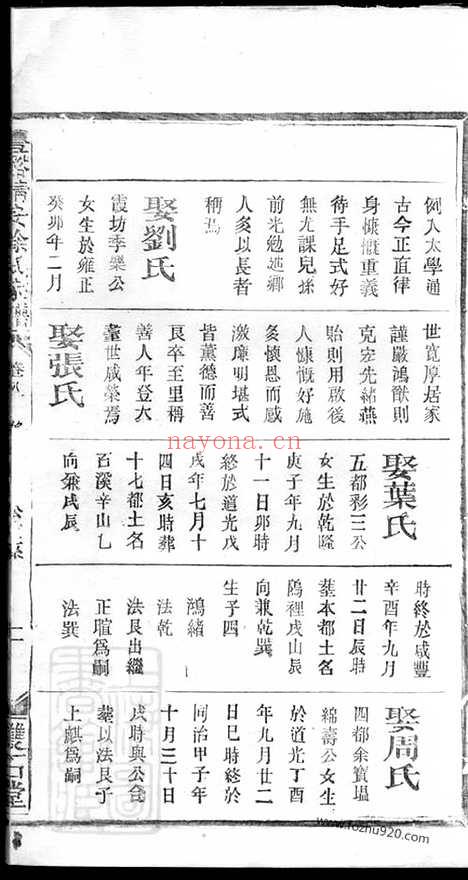 例入太學通
古今正直律
身慷慨重義
待手足式好
無尤課兒孫
前光勉逓鄉
人多以長者
稱焉
娶劉氏
霞坊季樂公
女生於雍正
癸卯年二月
世寬厚居家
謹嚴鴻猷則
克宏先緒燕
貽則用啟後
人慷慨好施
多懷恩而感
激廉明堪式
皆薰德而善
良卒至里稱
善人年登大
耋世咸榮焉
娶張氏
娶葉氏
五都彩三公
女生於乾隆
庚子年九月
十一日卯時
終於道光戊
戌年七月十
四日亥時葬
十七都土名
百溪辛山乙
向兼戌辰
時終於咸豐
辛酉年九月
廿二日辰時
葬本都土名
隖裡戌山辰
向兼乾巽
生子四
鴻緒
法乾
法良出繼
正暄為嗣
法巽
娶周氏
四都余寶塭
綿壽公女生
於道光丁酉
年九月廿二
日巳時終於
同治甲子年
十月三十日
戌時與公合
葬以法良子
上麒為嗣
徐氏宗譜
卷八
雙石堂
nayona.cn
www.fozhu920.com